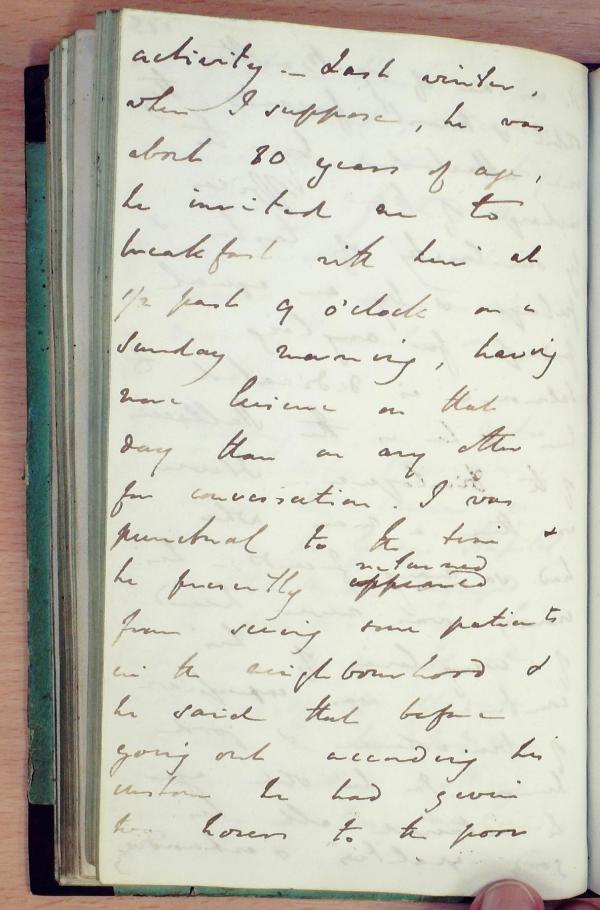 activity – Last winter,
when I suppose, he was
about 80 years of age,
he invited me to
breakfast with him at
1/2 past 9 o'clock on a
Sunday morning, having
more leisure on that
day than on any other
for conversation. I was
punctual to the time &
he presently returned appeared
from seeing some patients
in the neighbourhood &
he said that before
going out according his
custom he had given
two hours to the poor